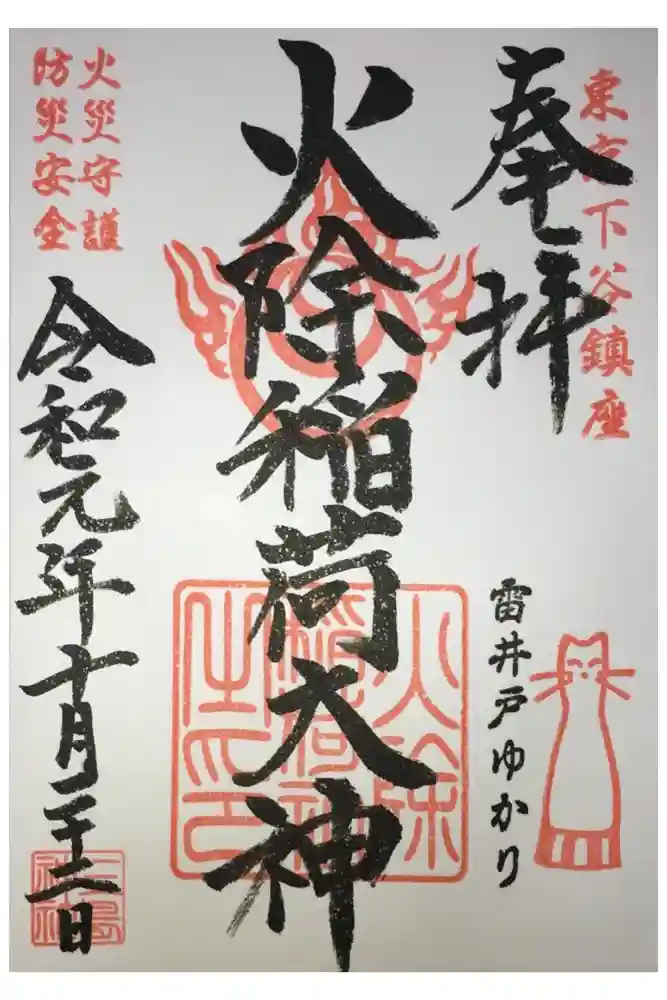 東京下谷鎮座
奉拝
雷井戸ゆかり
火除稲荷大神
火災守護
防災安全
令和元年十月二十二日
三島
神社